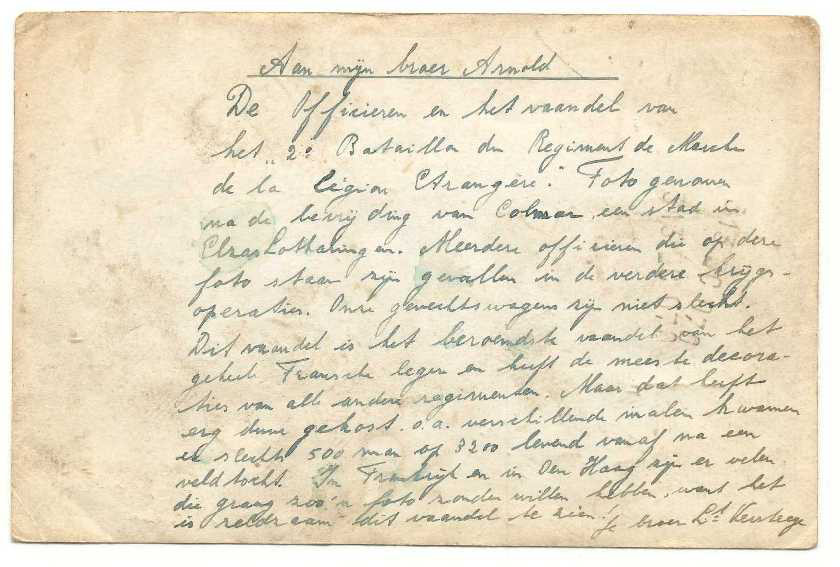 Aan mijn broer Arnold
De Officieren en het vaandel van
het "2e Bataillon du Regiment de Marche
de la Légion Etrangère." Foto genomen
na de bevrijding van Colmar, een stad in
Elzas Lotharingen. Meerdere officieren die op deze
foto staan zijn gevallen in de verdere krijgs-
operaties. Onze gevechtswagens zijn niet slecht.
Dit vaandel is het beroemdste vaandel van het
geheele Fransche leger en heeft de meeste decora-
ties van alle andere regimenten. Maar dat heeft
erg duur gekost. o.a. verschillende malen kwamen
er slecht 500 man op 3200 levend vanaf na een
veldtocht. In Frankrijk en in Den Haag zijn er velen
die graag zoo'n foto zouden willen hebben, want het
is zeldzaam dit vaandel te zien! Je broer Lt Versteege